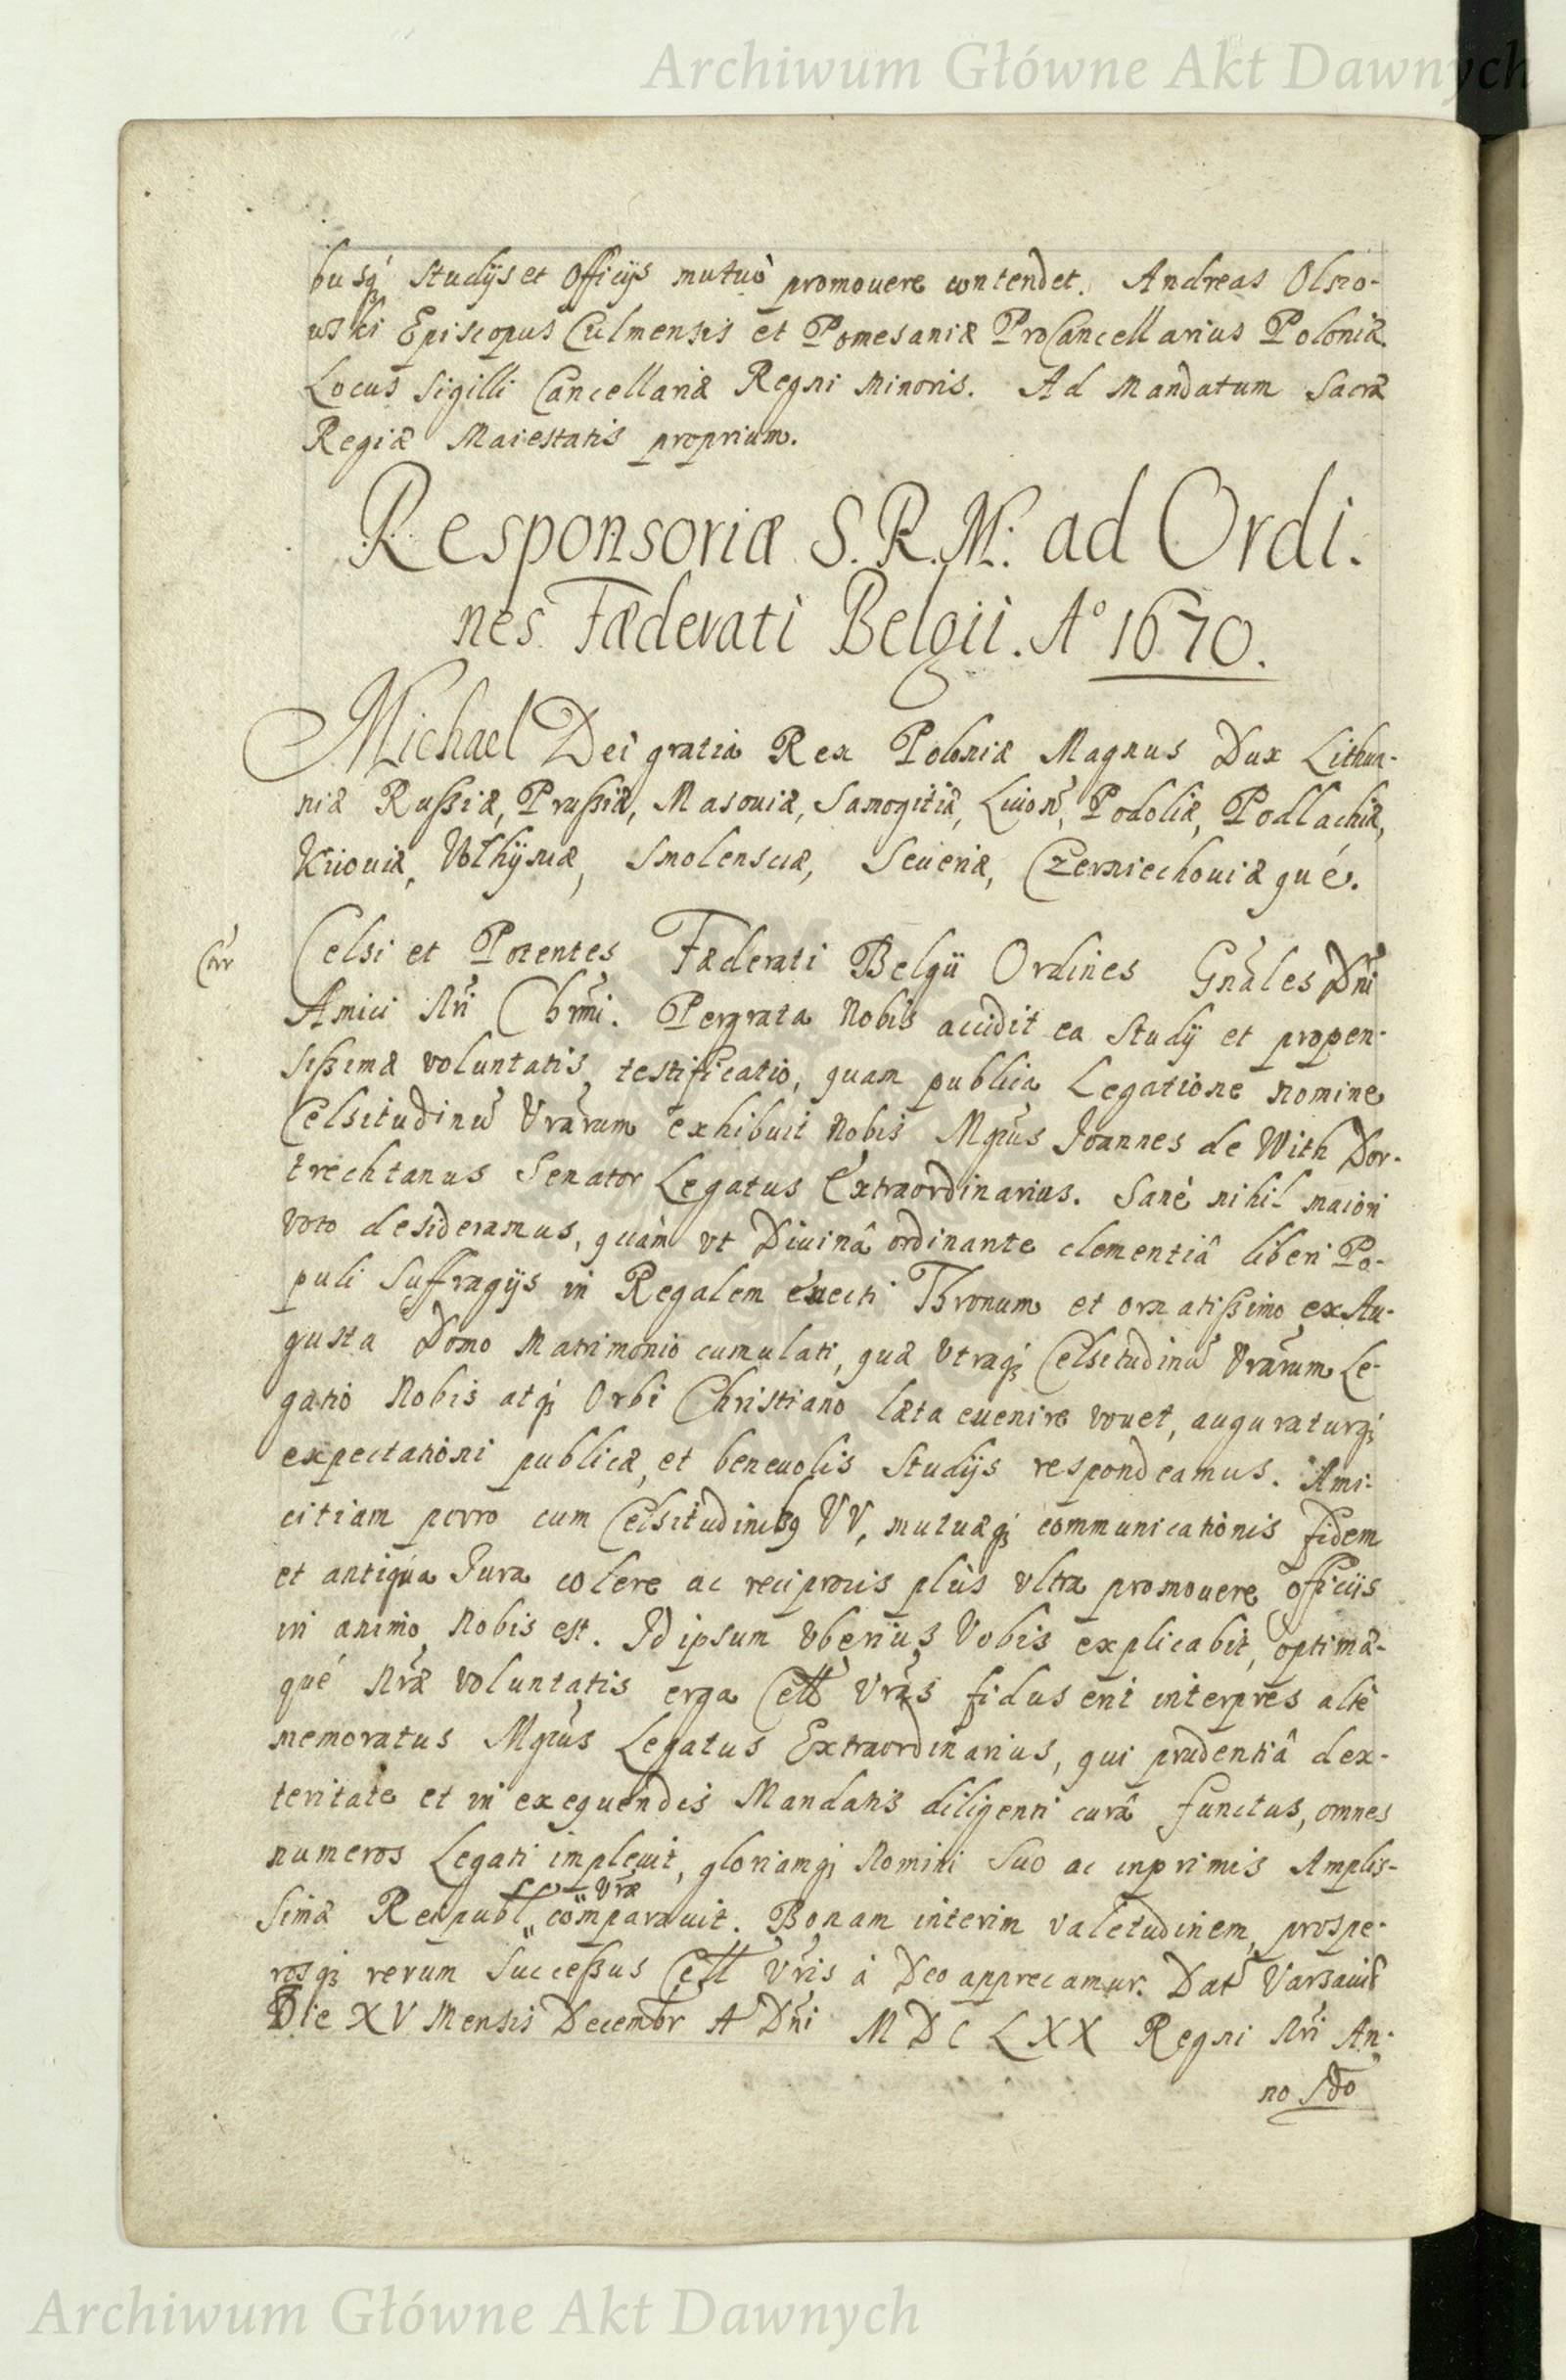 Archiwum Główne Akt Dawnych
busq́ Studijs et Officijs mutuò promouere contendet. Andreas Olszo-
wski Episcopus Culmensis et Pomesaniæ ProCancellarius Poloniæ
Locus Sigilli Cancellariæ Regni Minoris. Ad Mandatum Sacræ
Regiæ Maiestatis proprium.
Responsoriæ S. R. M. ad Ordi.
nes Fæderati Belgii. Aº 1670.
Michael Dei gratia Rex Poloniæ Magnus Dux Lithua-
niæ Rußiæ, Prußiæ, Masouiæ, Samogitiæ, Liuoñ, Podoliæ, Podlachiæ,
Kiiouiæ, Volhijniæ, Smolensciæ, Seueriæ, Czerniechouiæ qué.
Celsi et Potentes Fæderati Belgii Ordines Gñales Dñi
Amici Nr̃i Chr̃mi. Pergrata Nobis accidit ea Studij et propen-
sißimæ voluntatis testificatio, quam publica Legatione nomine
Celsitudinũ Vrãrum exhibuit Nobis Mgñus Joannes de With Dor-
trechtanus Senator Legatus Extraordinarius. Sanè nihil maiori
voto desideramus, quàm vt Diuinâ ordinante clementiâ liberi Po-
puli Suffragijs in Regalem euecti Thronum et ornatißimo ex Au-
gusta Domo Matrimonio cumulati, quæ vtraq; Celsitudinũ Vrãrum Le-
gatio Nobis atq; Orbi Christiano læta euenire vouet, auguraturq;
expectationi publicæ, et beneuolis Studijs respondeamus. Ami-
citiam porro cum Celsitudinibq VV, mutuæq; communicationis fidem
et antiqua Jura colere ac reciprocis plùs vltra promouere officiis
in animo Nobis est. Id ipsum vberius Vobis explicabit, optimæ-
qué Nr̃æ voluntatis erga Cell Vrãs fidus erit interpres altè
memoratus Mgñus Legatus Extraordinarius, qui prudentiâ dex-
teritate et in exequendis Mandatis diligenti curâ functus, omnes
numeros Legati impleuit, gloriamq; Nomini Suo ac inprimis Amplis-
Vræ
simæ Reipubl comparauit. Bonam interim valetudinem, prospe-
rosq; rerum Successus Cell Vr̃is à Deo apprecamur. Dat Varsauiæ
Die XV Mensis Decembr A Dñi MDCLXX Regni Nr̃i An-
no Sdo
Archiwum Główne Akt Dawnych